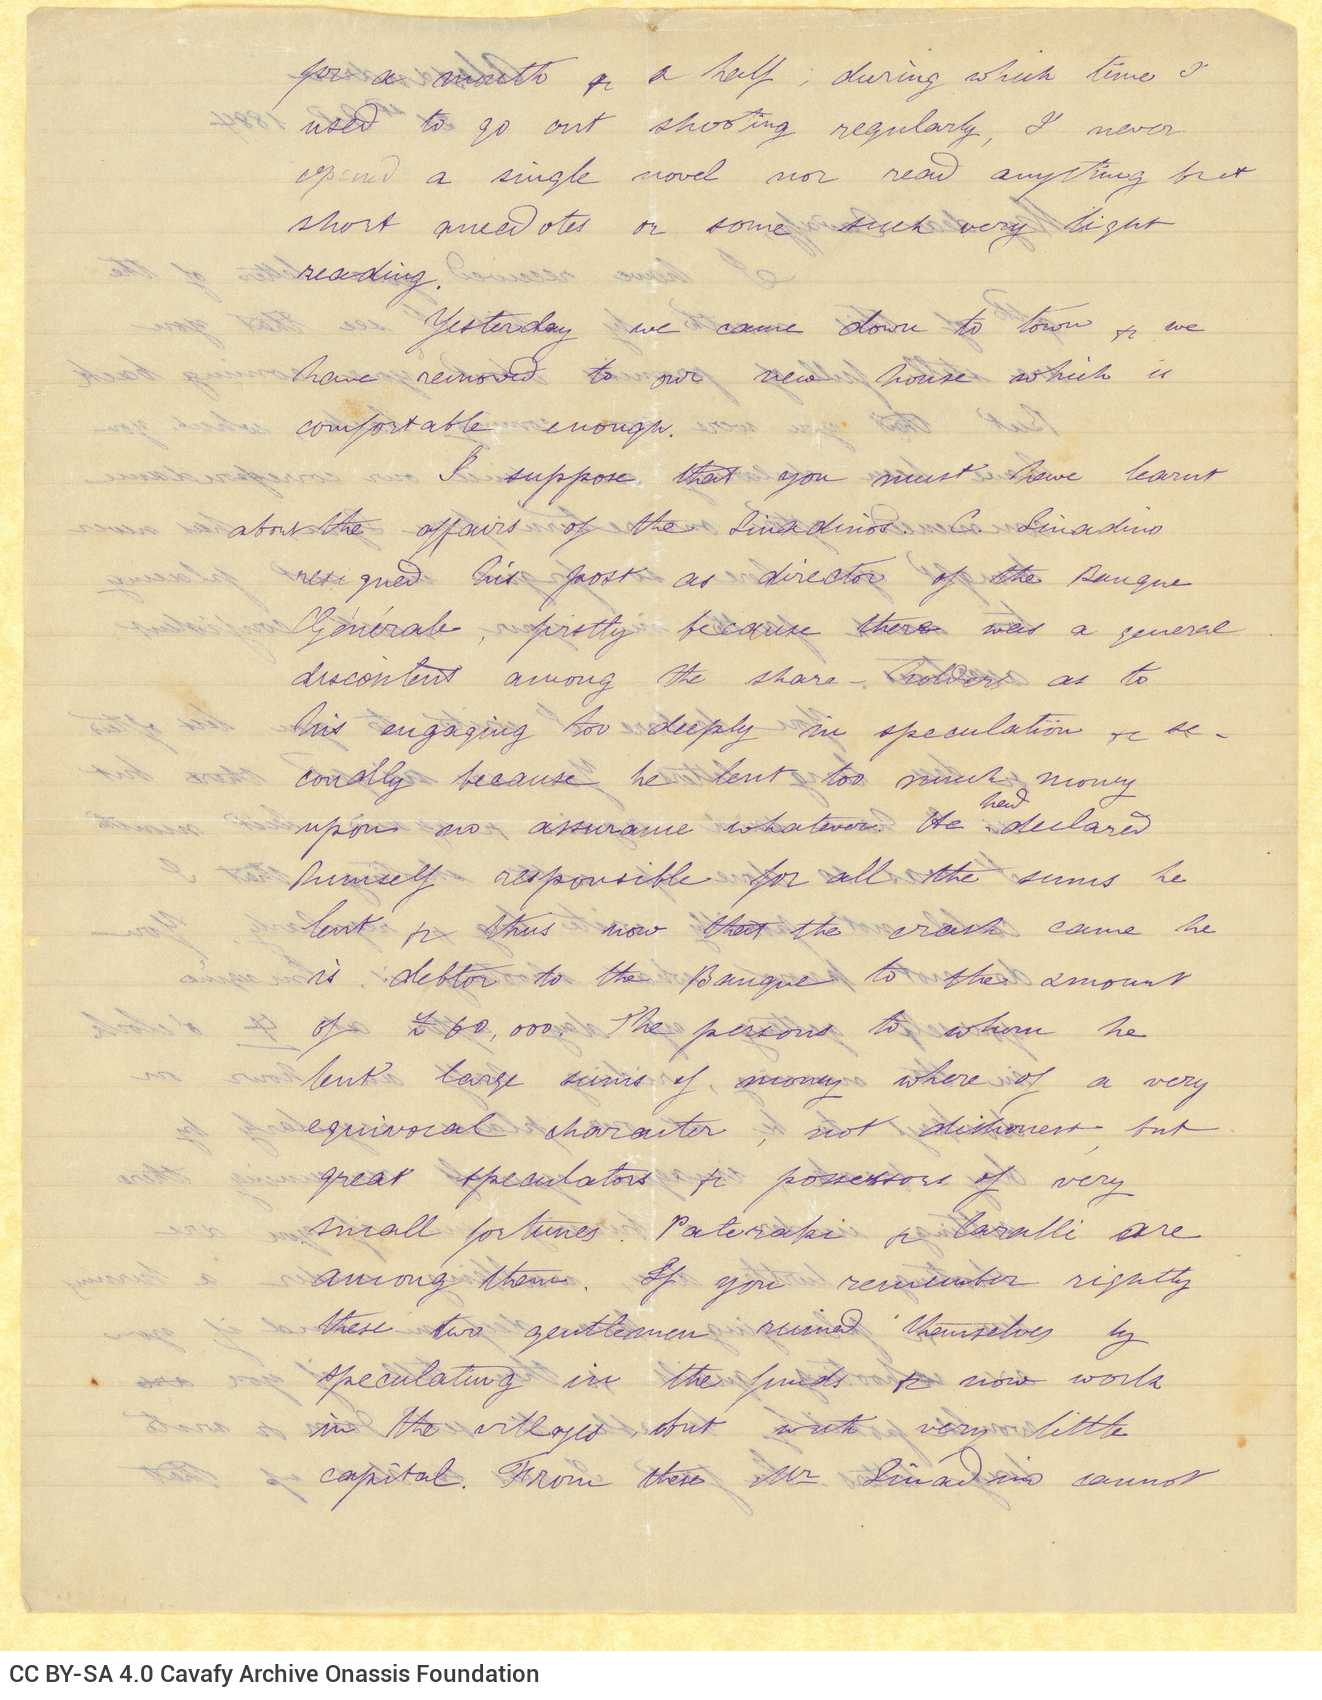 for a month & a half, during which time I
used to go out shooting regularly, I never
opened a single novel nor read anything but
short anecdotes or some such very light
reading.
Yesterday we came down to town & we
have removed to our new house which is
comfortable enough.
I suppose that you must have learnt
about the affairs of the Sinadinos. C. Sinadino
resigned his post as director of the Banque
Générale, firstly because there was a general
discontent among the share-holders as to
his engaging too deeply in speculation & se-
condly because he lent too much money
upon no assurance whatever. He had declared
himself responsible for all the sums he
lent & thus now that the crash came he
is debtor to the Banque to the amount
of £60,000. The persons to whom he
lent large sums of money where of a very
equivocal character, not dishonest, but
great speculators & possessors of very
small fortunes. Pateraki & Caralli are
among them. If you remember rightly
these two gentlemen ruined themselves by
speculating in the funds & now work
in the villages, but with very little
capital. From these Mr Sinadino cannot
CC BY-SA 4.0 Cavafy Archive Onassis Foundation